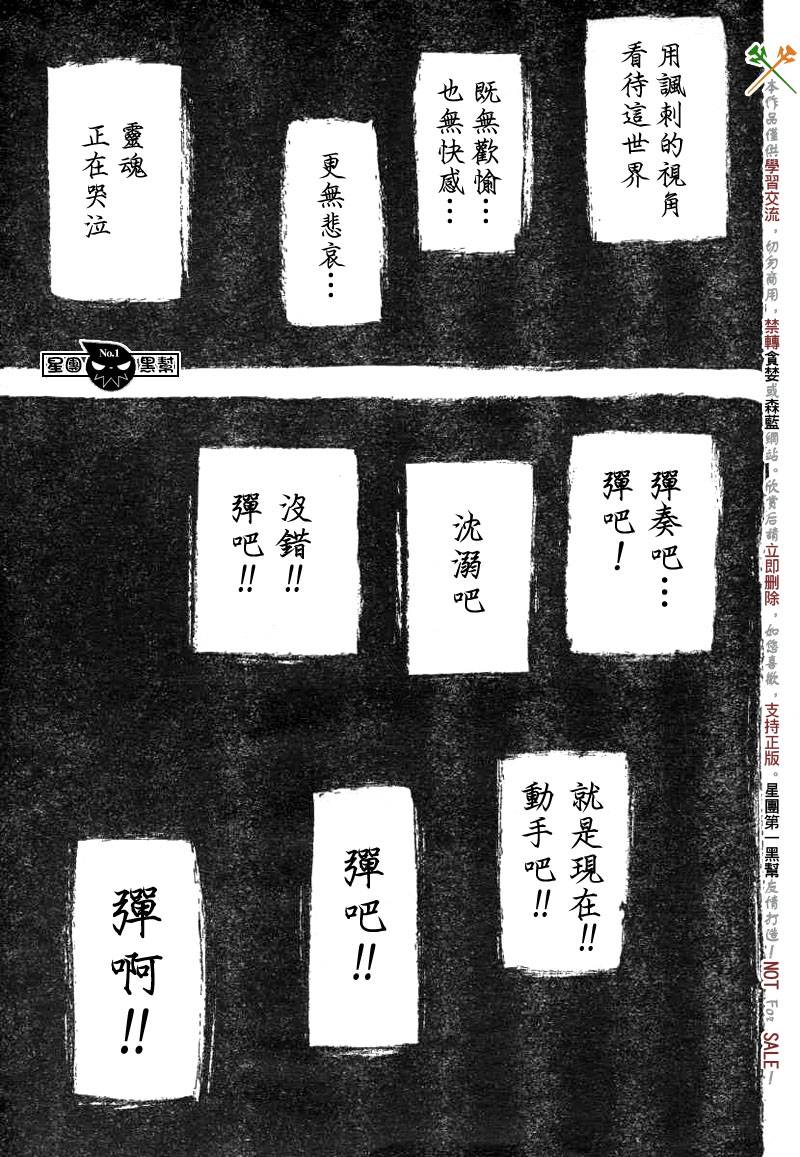 用諷刺的視角
看待這世界
既無歡愉…
也無快感…
更無悲哀…
靈魂
正在哭泣
No.1
星團黑幫
彈奏吧…
彈吧！
沈溺吧
沒錯!!
彈吧!!
就是現在!!
動手吧!!
彈吧!!
彈啊!!
本作品僅供學習交流，切勿商用，禁轉貪婪或森藍網站。欣賞后請立即刪除，如您喜歡，支持正版。星團第一黑幫友情打造—NOT For SALE—